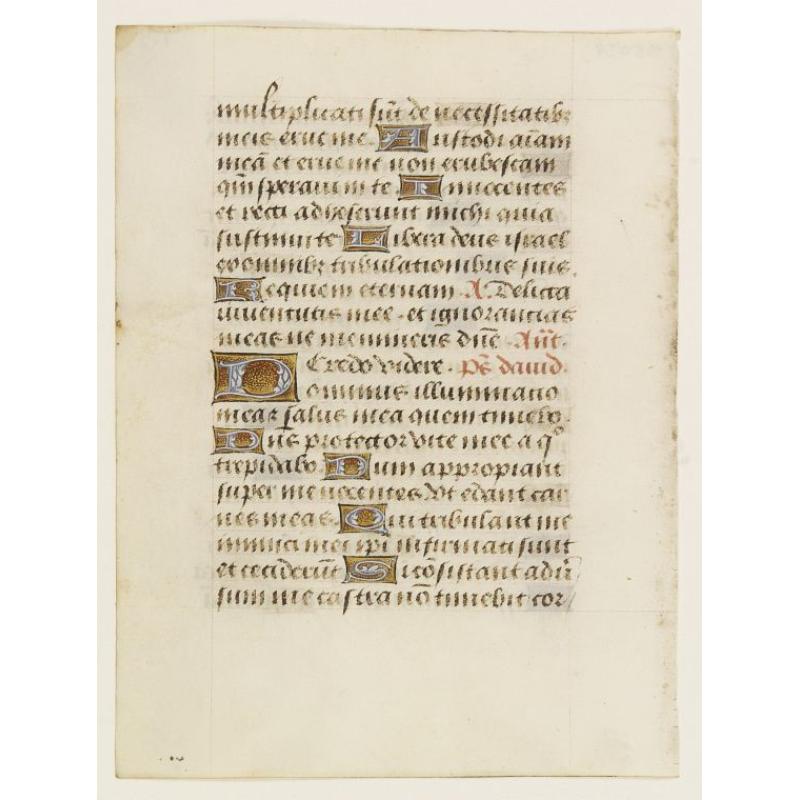 multiplicati sūt de necessitatib;
meis erue me. Custodi aīam
meā et erue me non erubescam
qm̄ speraui in te. Innocentes
et recti adheserunt michi quia
sustinui te Libera deus israel
ex omnibȝ tribulationibus suis.
Requiem eternam A. Delicta
iuuentutis mee. et ignorancias
meas ne memineris dn̄e. Añt.
Credo videre. ps̄ dauid.
Dominus illuminatio
mea ꝛ salus mea quem timebo.
Dn̄s protector vite mee a qº
trepidabo. Dum appropiant
super me nocentes vt edant car
nes meas. Qui tribulant me
inimici mei ipi infirmati sunt
et ceciderūt Si cōsistant aduͬ
sum me castra nō timebit cor